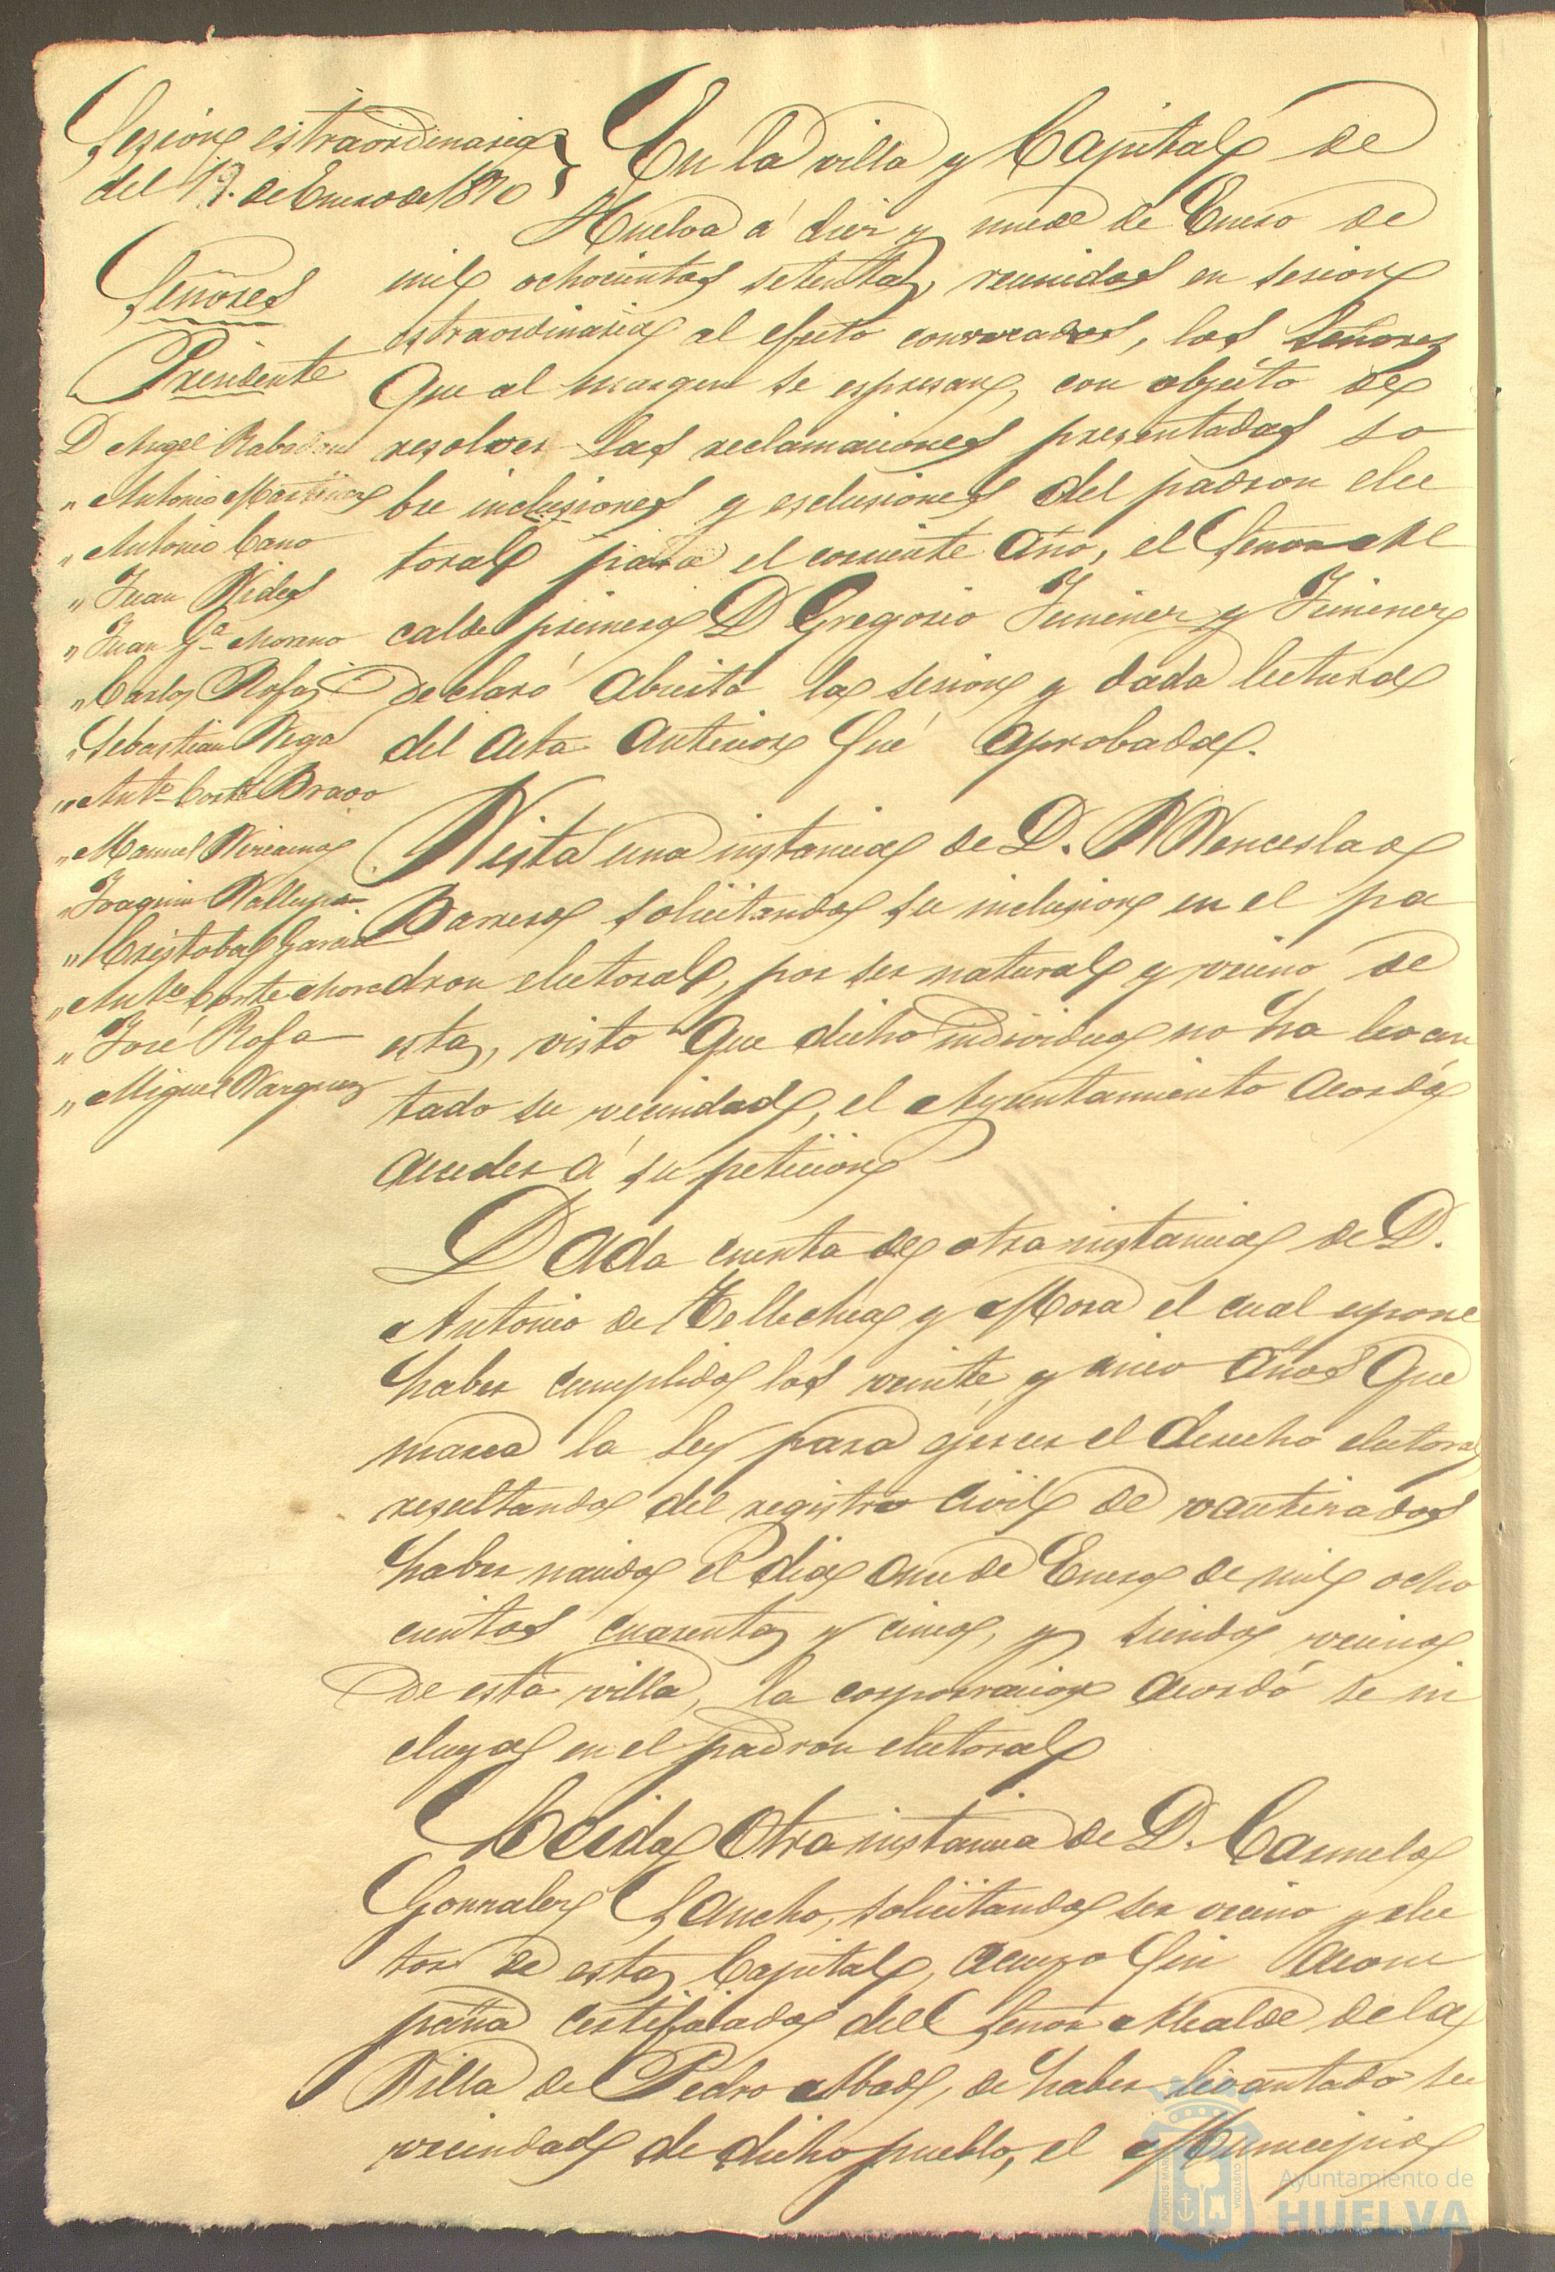 Sesion estraordinaria
del 19. de Enero de 1870
Señores
Presidente
D Angel Rabadan
" Antonio Martinez
" Antonio Cano
" Juan Vides
" Juan Gª Moreno
" Carlos Rofa
" Sebastian Vega
" Antº Corte Bravo
" Manuel
" Joaquin Vallejo
" Cristobal Garcia
" Antº Corte Mora
" José Rofa
" Miguel Vazquez
En la villa y Capital de
Huelva á diez y nueve de Enero de
mil ochocientos setenta, reunidos en sesion
estraordinaria al efecto convocados, los Señores
que al margen se espresan, con objeto de
resolver las reclamaciones presentadas so
bre inclusiones y esclusiones del padron elec
toral para el corriente año, el Señor Al
calde primero D Gregorio Jimenez y Jimenez
declaró abierta la sesion y dada lectura
del acta anterior fué aprobada.
Vista una instancia de D. Wenceslao
Barrera solicitando su inclusion en el pa
dron electoral, por ser natural y vecino de
esta, visto que dicho individuo no ha levan
tado su vecindad, el Ayuntamiento acordó
acceder á su peticion
Dada cuenta de otra instancia de D.
Antonio de Tellechea y Mora el cual espone
haber cumplido los veinte y cinco años que
marca la ley para ejercer el derecho electoral
resultando del registro civil de bautizados
haber nacido el dia once de Enero de mil ocho
cientos cuarenta y cinco, y siendo vecino
de esta villa, la corporacion acordó se in
cluya en el padron electoral
Leida otra instancia de D. Carmelo
Gonzalez Sancho, solicitando ser vecino y elec
tor de esta Capital, á cuyo fin acom
paña certificado del Señor Alcalde de la
Villa de Pedro Abad, de haber levantado su
vecindad de dicho pueblo, el Municipio
Ayuntamiento de
HUELVA